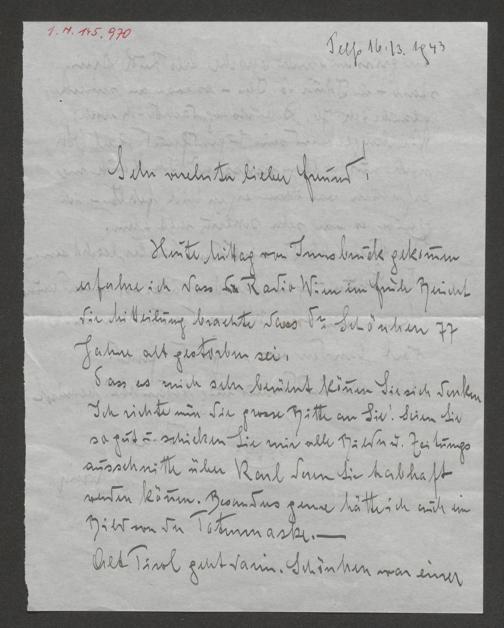 I. N. 175.970
Telfs 16./3. 1943
Sehr verehrter lieber Freund!
Heute Mittag von Innsbruck gekommen
erfahre ich dass Radio Wien im früh Bericht
die Mitteilung brachte dass Dr Schönherr 77
Jahre alt gestorben sei.
Dass es mich sehr berührt können Sie sich denken
Ich richte nun die grosse Bitte an Sie! Seien Sie
so gut u. schicken Sie mir alle Bilder u. Zeitungs
ausschnitte über Karl deren Sie habhaft
werden können. Besonders gerne hätte ich auch ein
Bild von der Totenmaske.—
Alt Tirol geht darin. Schönherr war einer